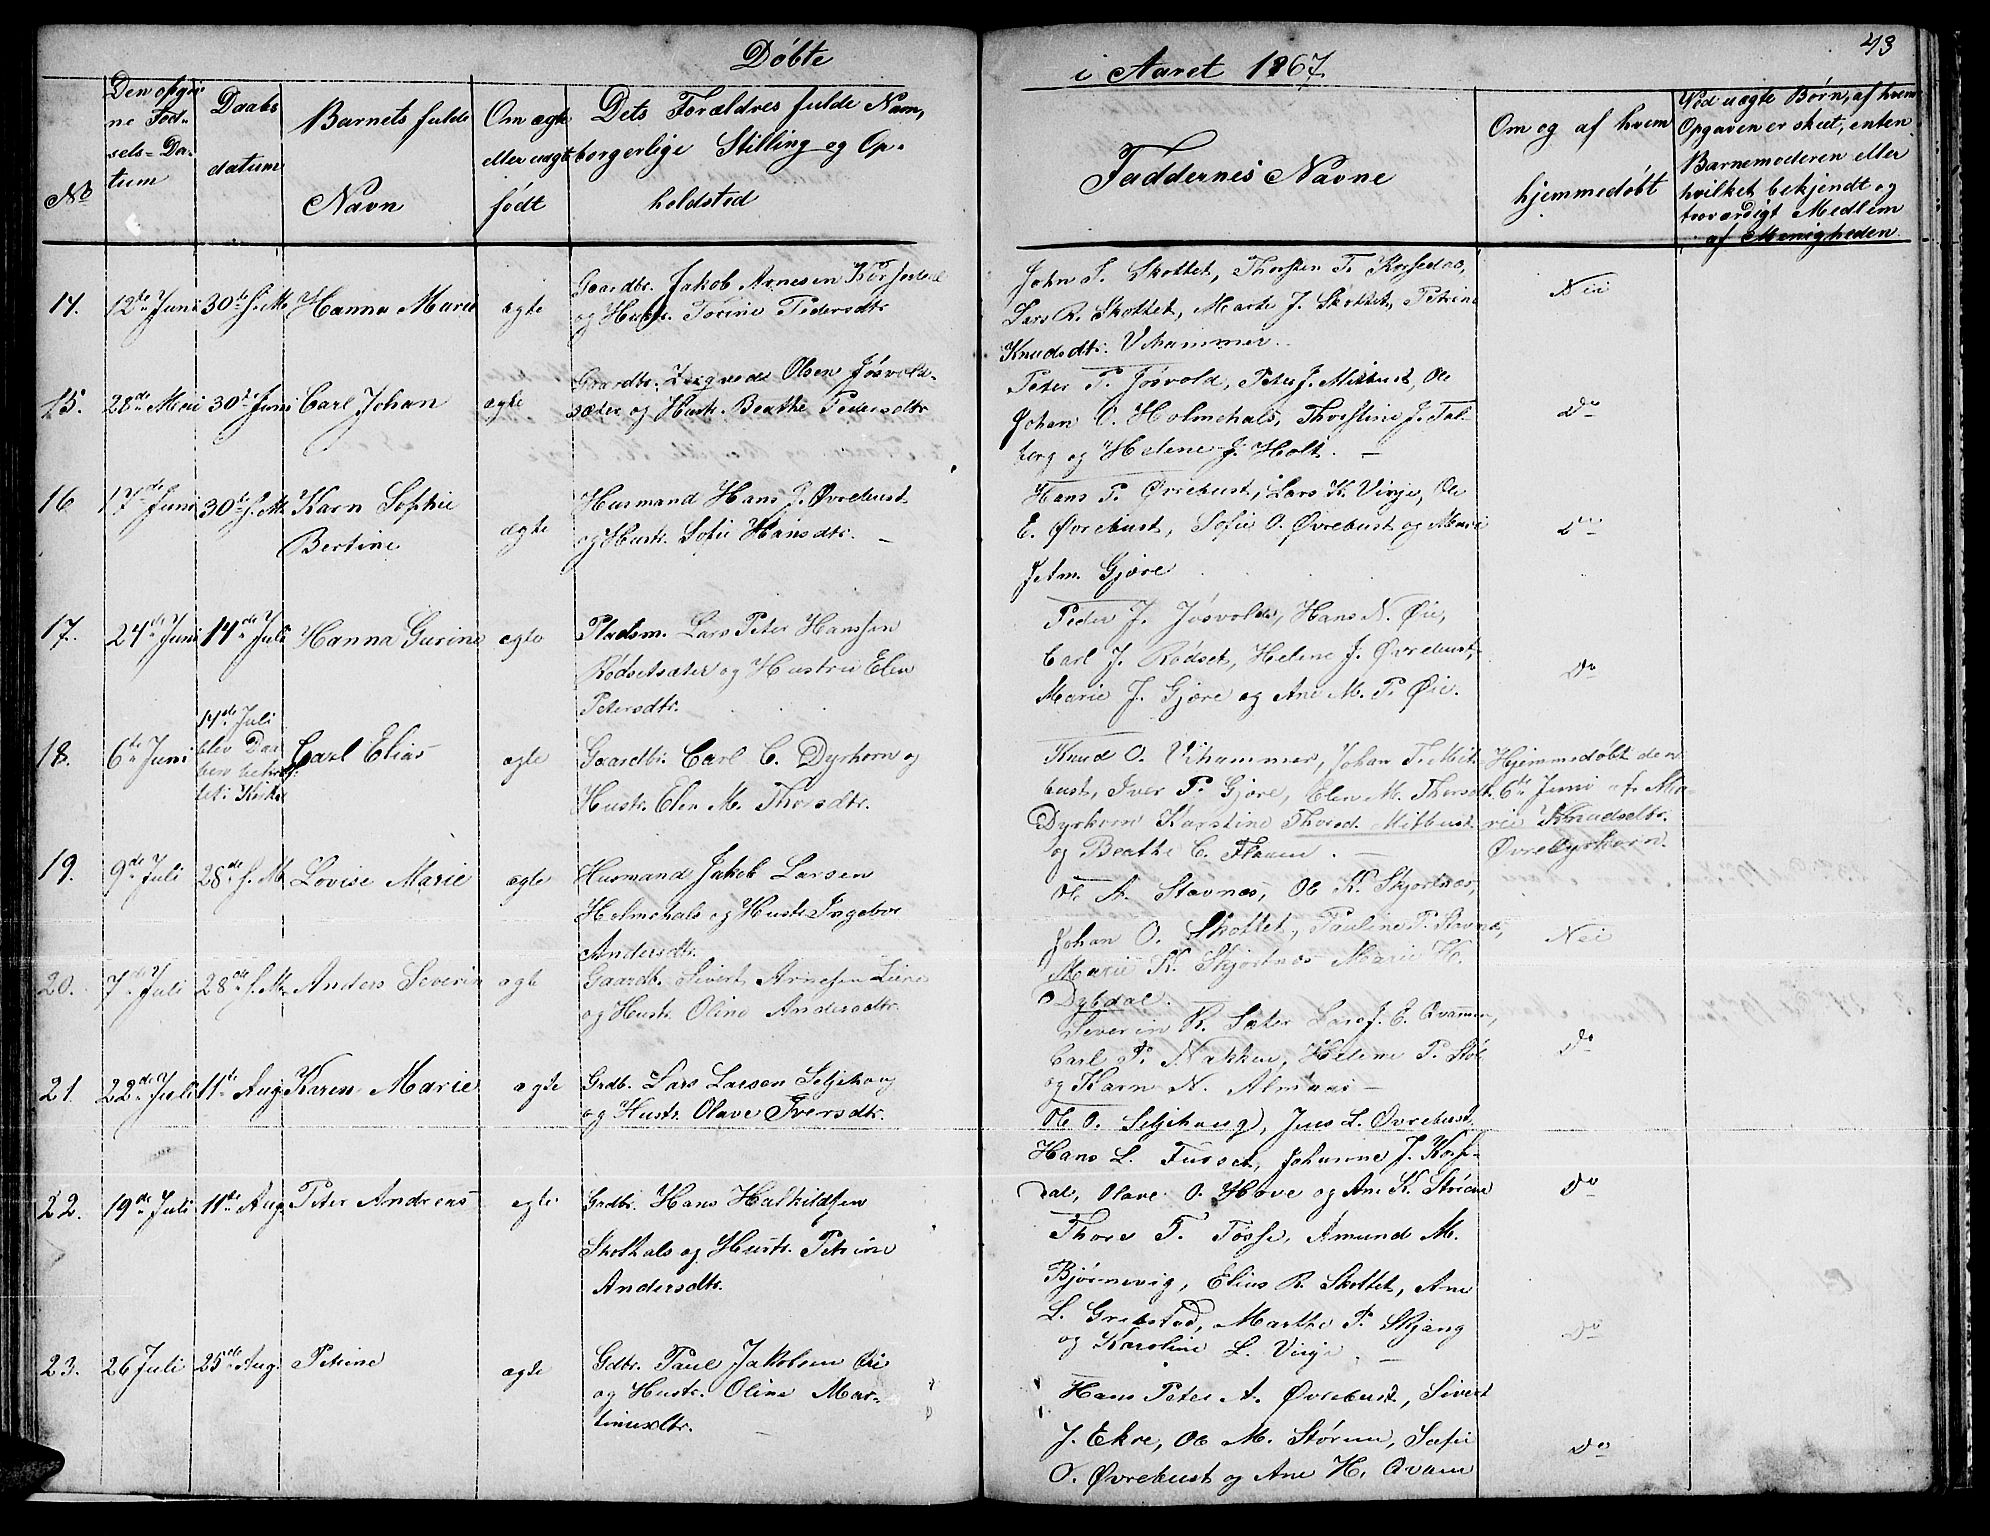 43
Døbte
i Aaret 1867
No
Den opgiv-
ne Fød-
sels-Da-
tum
Daabs
datum
Barnets fulde
Navn
Om ægte
eller uægte
født
Dets Forældres fulde Navn,
borgerlige Stilling og Op-
holdsted
Faddernes Navne
Om og af hvem
hjemmedøbt
Ved uægte Børn, af hvem
Opgaven er skeet, enten
Barnemoderen eller
hvilket bekjendt og
troværdigt Medlem
af Menigheden
14. 12te Juni 30te s. M. Hanna Marie ægte
Gaardbr. Jakob Arnesen Korsedal
og Hustr. Torine Pedersdtr.
John T. Skottet, Thorsten T. Korsedal,
Lars R. Skottet, Marte J. Skottet, Petrine
Knudsdtr. Vihammer.
Nei
15. 28de Mai 30te Juni Carl Johan ægte
Gaardbr. Olsen Jøsvold-
sæter og Hustr. Beathe Pedersdtr
Peter P. Jøsvold, Peter J. Mitbust, Ole
Johan O. Holmehals, Thorstine J. Tal-
berg og Helene J. Holt. —
Do
16 17de Juni 30te s. M. Karn Sophie
Bertine
ægte
Husmand Hans J. Øvrebust
og Hustr. Sofie Hansdtr. —
Hans P. Øvrebust, Lars K. Vinje, Ole
E. Øvrebust, Sofie O. Øvrebust og Marie
Gjøre
Do
17. 24de Juni 14de Juli Hanna Gurine ægte
Pladsm. Lars Peter Hanssen
Rødsetsæter og Hustru Elen
Petersdtr.
Peder J. Jøsvold, Hans N. Øie,
Carl J. Rødset, Helene J. Øvrebust,
Marie J. Gjøre og Ane M. P. Øie.
Do
18. 6te Juni
14de Juli
blev Daa-
ben bekræf-
tet i Kirken
Carl Elias ægte
Gaardbr. Carl C. Dyrkorn og
Hustr. Elen M. Thorsdtr.
Knud O. Vihammer, Johan T. Mit-
bust, Iver P. Gjøre, Elen M. Thorsdt.
Dyrkorn Karstine Thorsd. Mitbust
og Beathe C. Flaaen. —
Hjemmedøbt den
6te Juni af Ma-
rie Knudsdtr.
Øvredyrkorn.
19. 9de Juli 28de s. M. Lovise Marie ægte
Husmand Jakob Larsen
Holmehals og Hustr. Ingebor
Andersdtr.
Ole A. Stavnæs, Ole K. Skjortnæs,
Johan O. Skottet, Pauline P. Stavnæs,
Marie K. Skjortnæs Marie H.
Dybdal.
Nei
20. 7de Juli 28de s. M. Anders Severin ægte
Gaardb. Sivert Arnesen Liene
og Hustr. Oline Andersdtr.
Severin R. Sæter Lars J. E. Qvammen,
Carl P. Nakken, Helene P.
og Karn N. Almaas —
Do
21. 22de Juli 11te Aug. Karen Marie ægte
Grdb. Lars Larsen Seljehaug
og Hustr. Olave Iversdtr.
Ole O. Seljehaug, Jens L. Øvrebust
Hans L. Fusset, Johanne J. Korse-
dal, Olave O. Hove og Ane K. Størene
Do
22. 19de Juli 11te Aug. Peter Andreas ægte
Grdbr. Hans Halkildsen
Skothals og Hustr. Petrine
Andersdtr.
Thore T. Tøsse, Amund M.
Bjørnevig, Elias R. Skottet, Ane
L. Grebstad, Marthe P. Skjong
og Karoline L. Vinje —
Do
23. 26 Juli 25de Aug. Petrine ægte
Gdbr. Paul Jakobsen Øie
og Hustr. Oline Mar-
tinusdtr.
Hans Peter A. Øvrebust, Sivert
J. Ekre, Ole M. Størene, Sofie
O. Øvrebust og Ane H. Qvam
Do